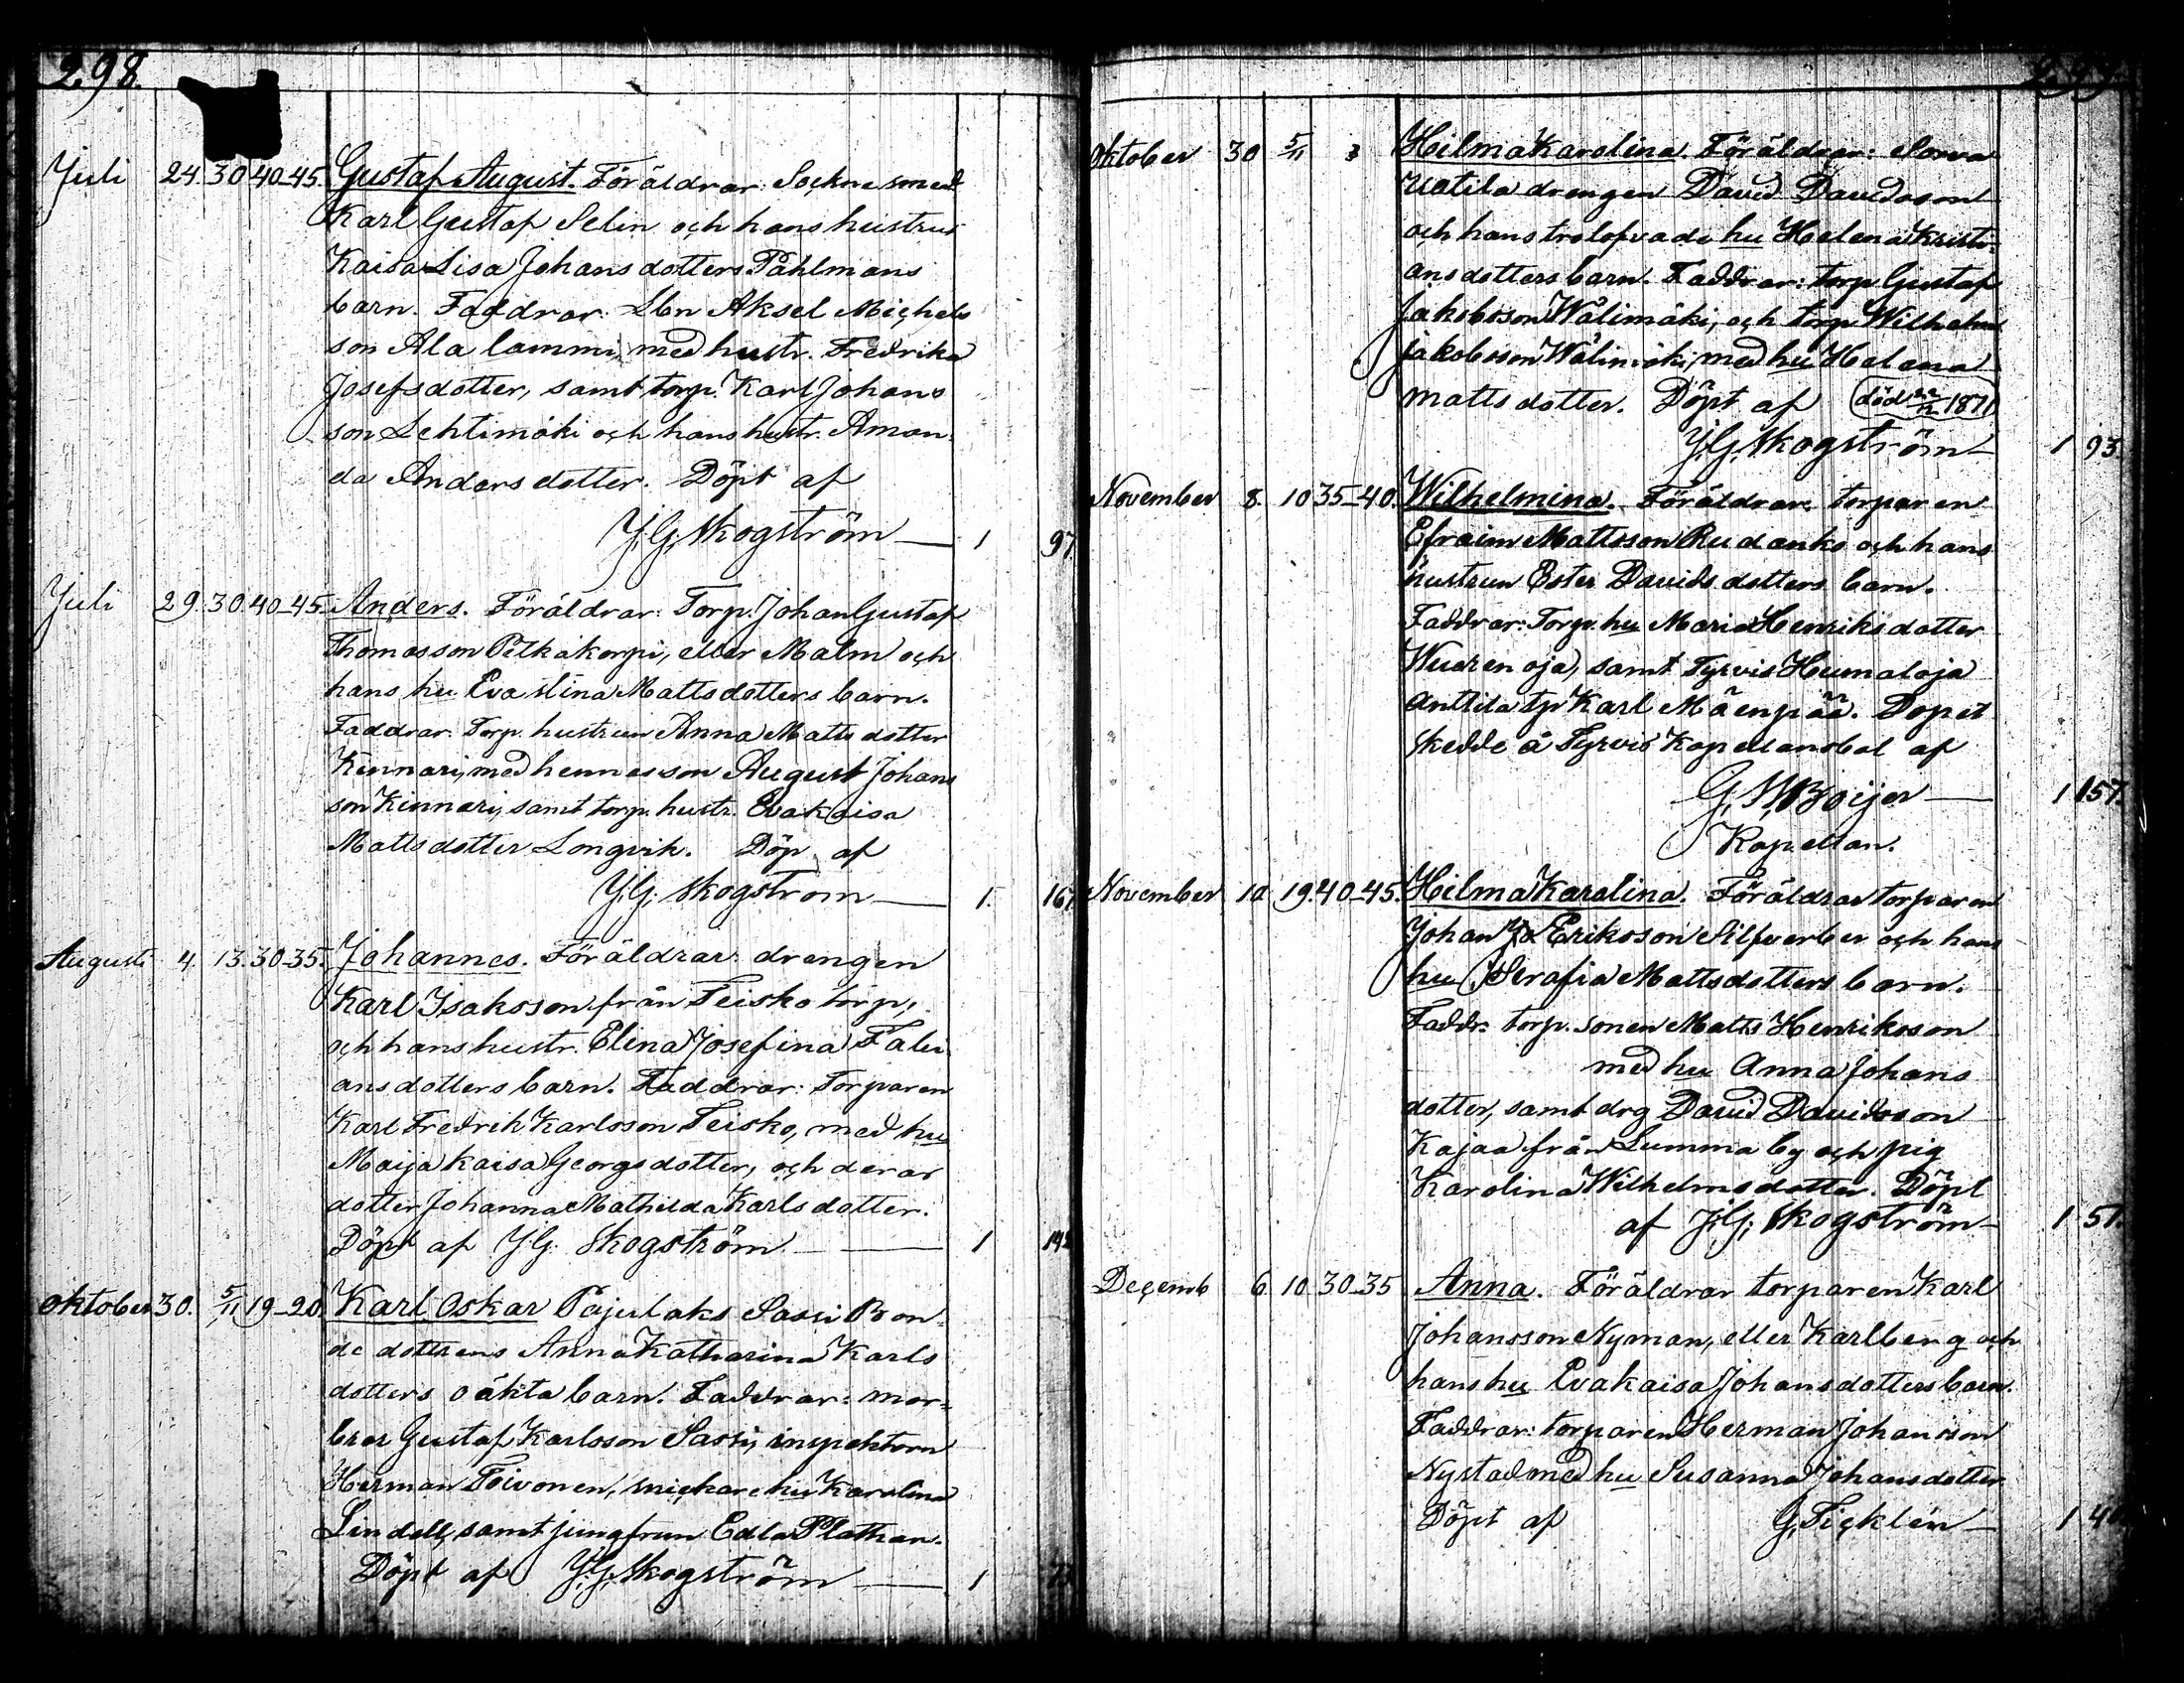 298.
Juli 24. 30 40-45. Gustaf August. Föräldrar: Sockne smed
Karl Gustaf Selin och hans hustrus
Kaisa Lisa Johansdotters Påhlmans
barn. Faddrar: Aksel Michels
son Ala lammi, med hustr. Fredrika
Josefsdotter, samt torp. Karl Johans
son Lehtimäki och hans hustr. Aman
da Andersdotter. Döpt af
J.G. Skogström — 1 97
Juli 29. 30. 40-45. Anders. Föräldrar: Torp. Johan Gustaf
Thomasson Pitkäkorpi, eller Malm och
hans hu Eva Stina Mattsdotters barn.
Faddrar: Torp. hustrun Anna Mattsdotter
Kinnari, med hennes son August Johans
son Kinnari, samt torp. hustr. Eva Kaisa
Mattsdotter Longvik. Döp af
J.G. Skogström — 1. 167
Augusti 4. 13. 30-35. Johannes. Föräldrar: drengen
Karl Isaksson från Teisko torp,
och hans hustr. Elina Josefina Fabi
ansdotters barn. Faddrar: Torparen
Karl Fredrik Karlsson Teisko, med hu
Maija Kaisa Georgsdotter, och deras
dotter Johanna Mathilda Karlsdotter.
Döpt af J.G. Skogström — 1
oktober 30. 5/11 19-20. Karl Oskar Pajulaks Sassi Bon=
de dottrens Anna Katharina Karls
dotters oäkta barn. Faddrar: mor=
bror Gustaf Karlsson Sassi, inspektorn
Herman Toivonen, snickare hu Karolina
Lindell, samt jungfrun Edla Plathan.
Döpt af J.G. Skogström — 1
299.
Oktober 30 5/11 Hilma Karolina. Föräldrar: Sorva
Uotila drengen David Davidsson
och hans trolofvade hu Helena Kristi=
ansdotters barn. Faddrar: torp Gustaf
Jakobsson Wälimäki, och torp Wilhelm
Jakobsson Wälimäki, med hu Helena
Mattsdotter. Döpt af (död 22/12 1871)
J.G. Skogström — 1 93
November 8. 10 35-40. Wilhelmina. Föräldrar: torparen
Efraim Mattsson Rudanko och hans
hustrun Ester Davidsdotters barn.
Faddrar: Torp. hu Maria Henriksdotter
Wuoren oja, samt Tyrvis Humaloja
Anttila tp Karl Mäenpää. Dopet
skedde å Tyrvis Kapellansbol af
Boijer — 1 157.
Kapellan.
November 10. 19. 40-45. Hilma Karolina. Föräldrar torparen
Johan Eriksson Silfverber och hans
hu Serafia Mattsdotters barn.
Faddr. torp. sonen Matts Henriksson
med hu Anna Johans
dotter, samt drg David Davidsson
Kajaa från Lumma by och pig
Karolina Wilhelmsdotter. Döpt
af J.G. Skogström — 1 51.
Decemb 6 10 30-35 Anna. Föräldrar torparen Karl
Johansson Nyman, eller Karlberg och
hans hu Eva Kaisa Johansdotters barn.
Faddrar: torparen Herman Johansson
Nystad med hu Susanna Johansdotter
Döpt af G. Sicklén — 1